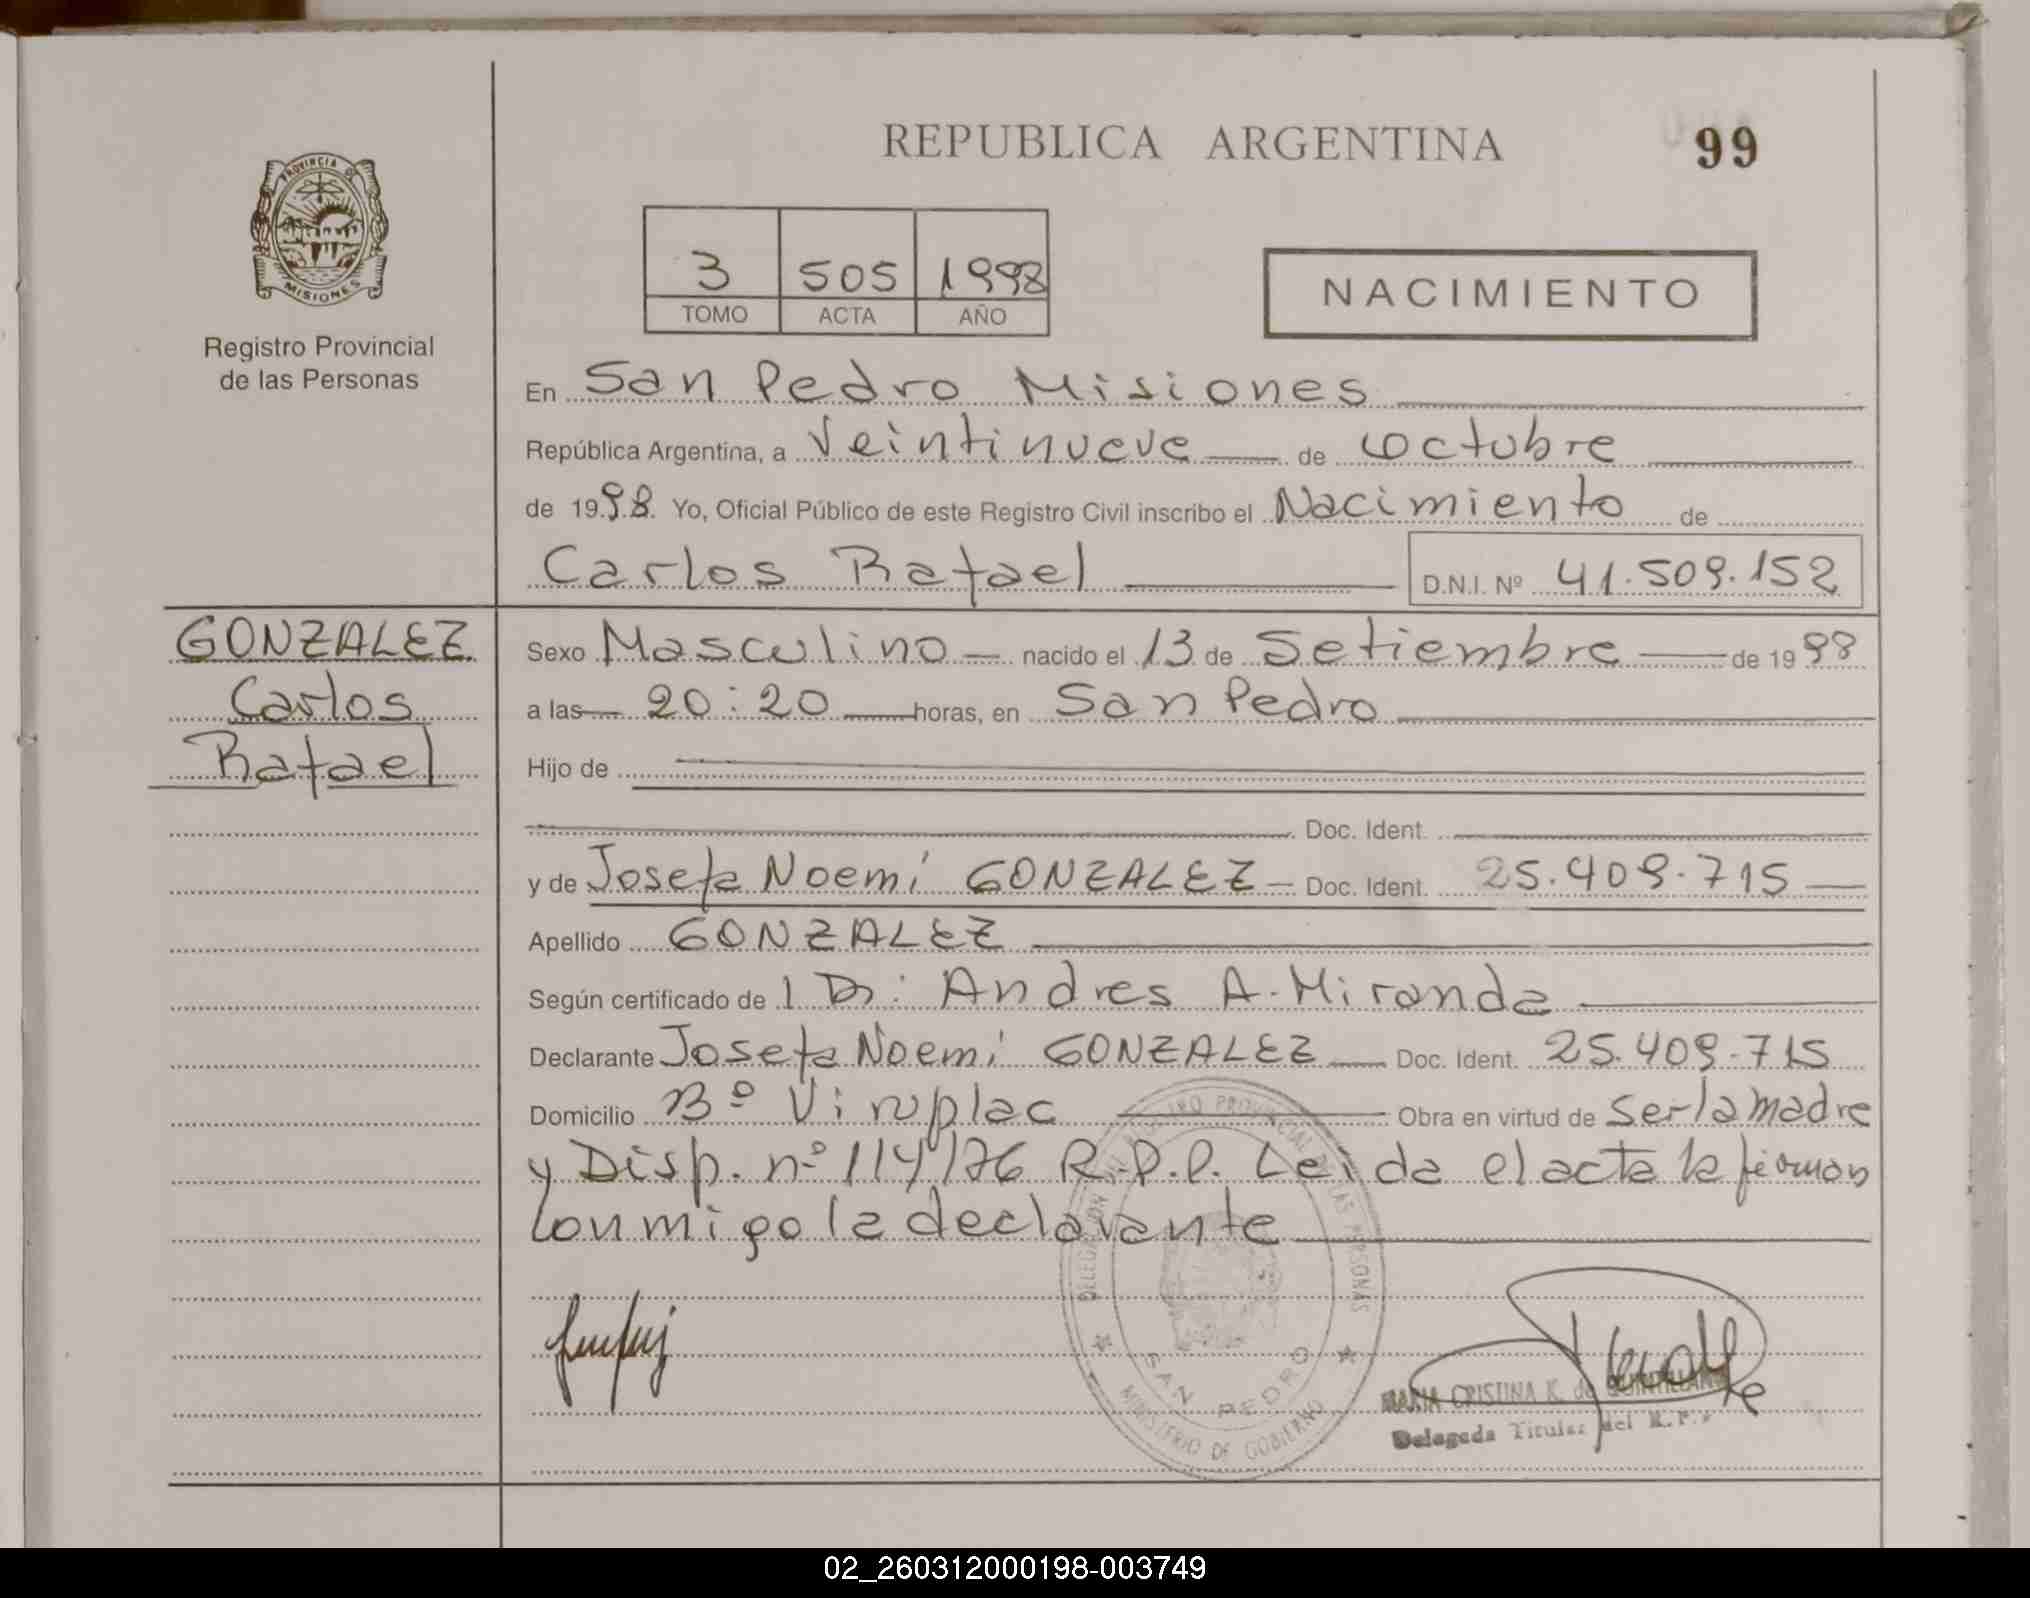 REPUBLICA ARGENTINA
99
PROVINCIA DE
MISIONES
Registro Provincial
de las Personas
3 505 1998
TOMO ACTA AÑO
NACIMIENTO
En San Pedro Misiones
República Argentina, a Veintinueve de octubre
de 1998. Yo, Oficial Público de este Registro Civil inscribo el Nacimiento de
Carlos Rafael D.N.I. Nº 41.509.152
GONZALEZ
Carlos
Rafael
Sexo Masculino nacido el 13 de Setiembre de 1998
a las 20:20 horas, en San Pedro
Hijo de
Doc. Ident.
y de Josefa Noemí GONZALEZ Doc. Ident. 25.409.715
Apellido GONZALEZ
Según certificado de 1 Dr: Andres A. Miranda
Declarante Josefa Noemí GONZALEZ Doc. Ident. 25.409.715
Domicilio Bº Viruplac Obra en virtud de ser la madre
y Disp. nº 114/76 R.P.P. Leida el acta la firman
conmigo la declarante
DELEGACION DEL REGISTRO PROVINCIAL DE LAS PERSONAS
SAN PEDRO
MINISTERIO DE GOBIERNO
MARIA CRISTINA K. de QUINTILLAN
Delegada Titular del R.P.P.
02_260312000198-003749